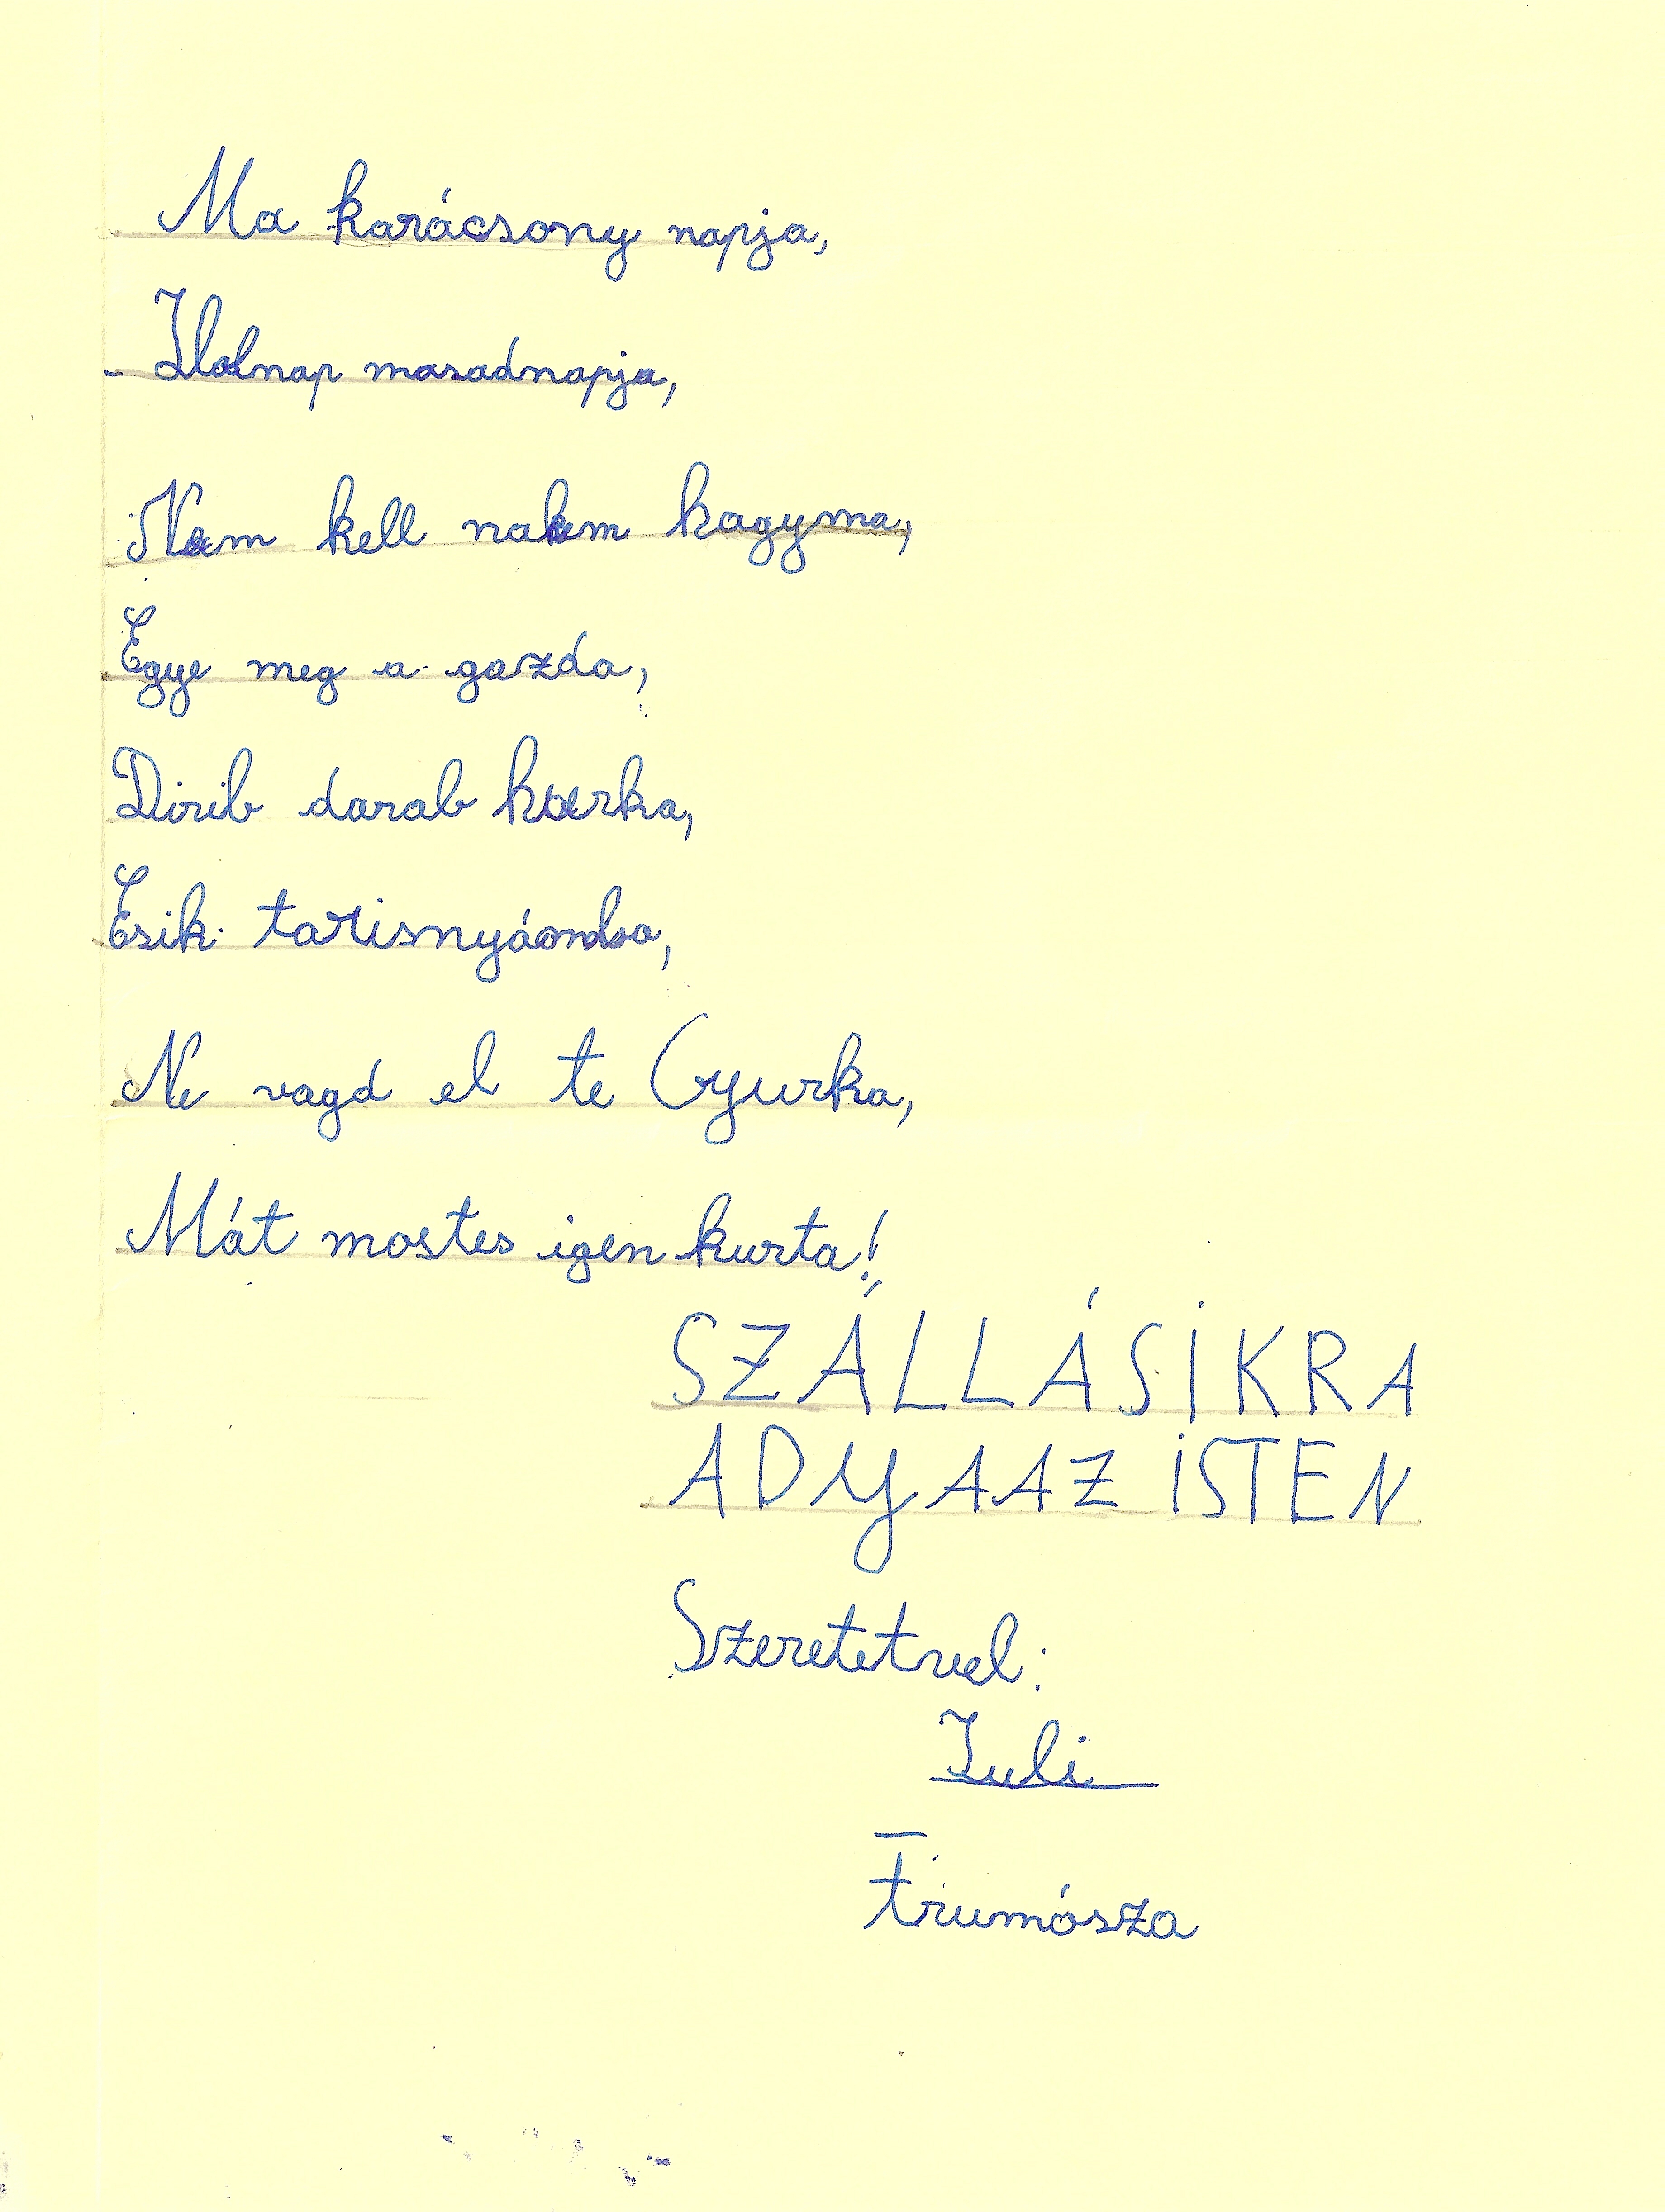 Ma karácsony napja,
Holnap masadnapja,
Nem kell nakem hagyma,
Egye meg a gazda,
Dirib darab hurka,
Esik tarisnyáomba,
Ne vagd el te Gyurka,
Mát mostes igen kurta!
SZÁLLÁSIKRA
ADYAAZ ISTEN
Szeretetvel:
Juli
Frumósza